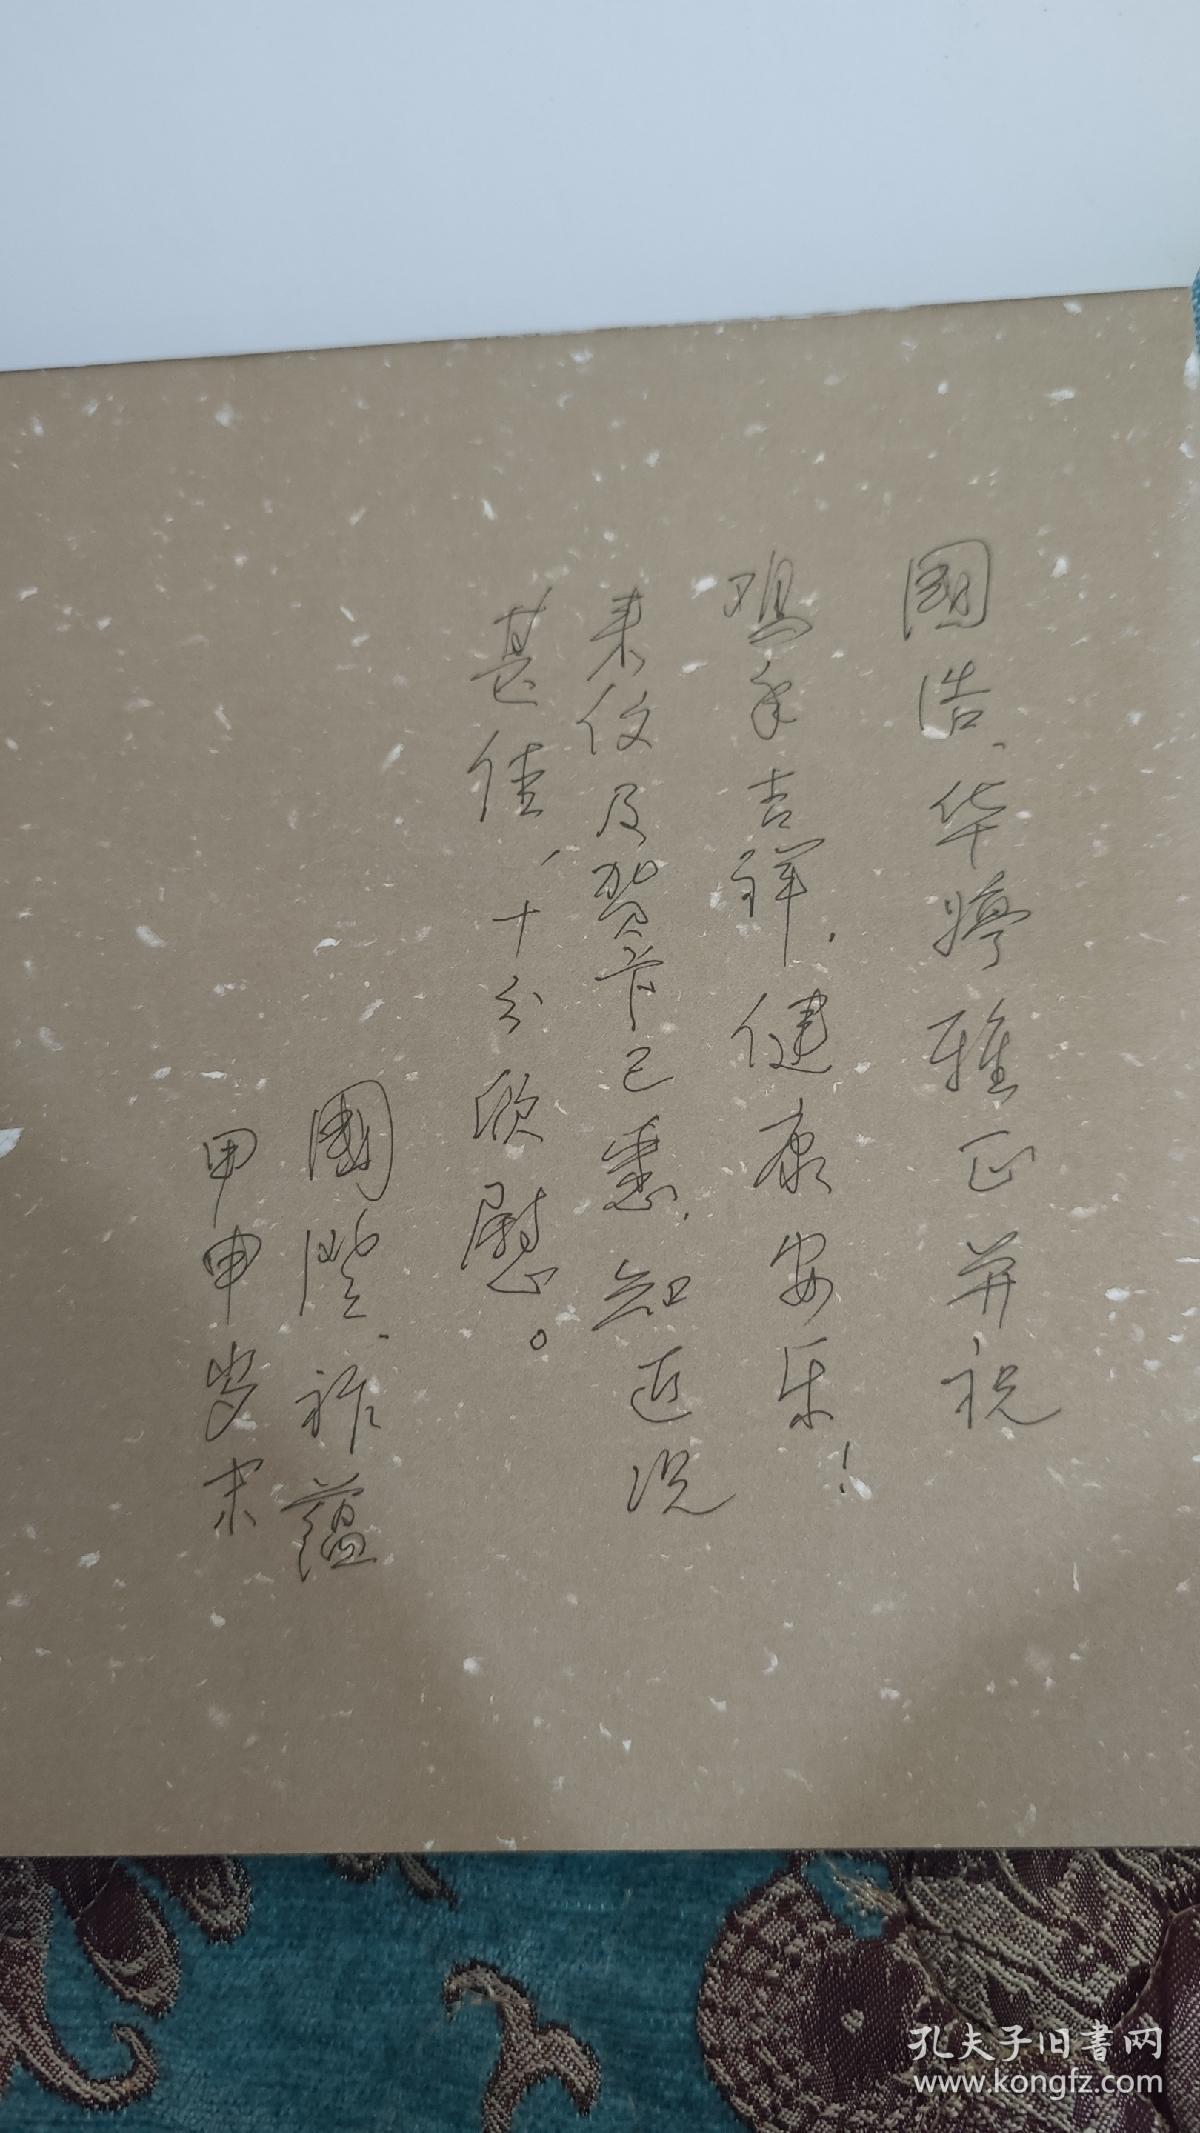 國浩、华婷雅正并祝
鸡年吉祥，健康安乐！
来仪及贺卡已悉，知近况
甚佳，十分欣慰。
國滢、祚蕴
甲申岁末
孔夫子旧書网
www.kongfz.com